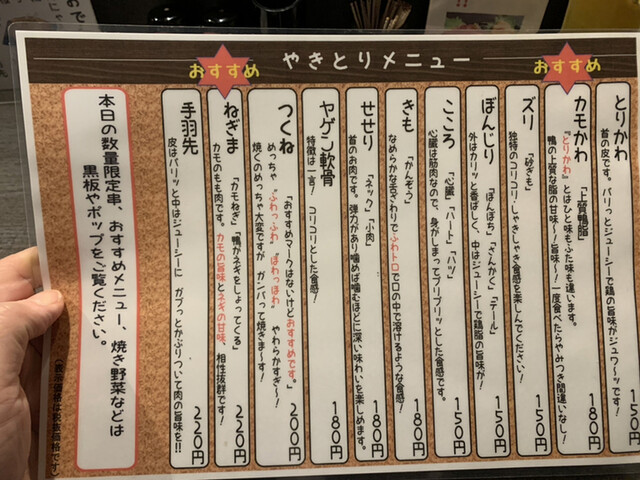 やきとりメニュー
とりかわ
首の皮です。パリっとジューシーで鶏の旨味がジュワ〜ッです！
150円
おすすめ
カモかわ
「上質鴨脂」
『とりかわ』とはひと味もふた味も違います。
鴨の上質な脂の甘味〜！旨味〜！一度食べたらやみつき間違いなし！
180円
ズリ
「砂ぎも」
独特のコリコリ・しゃきしゃき食感を楽しんでください！
150円
ぼんじり
「ぼんぼち」「さんかく」「テール」
外はカリっと香ばしく、中はジューシーで鶏脂の旨味が！
150円
こころ
「心臓」「ハート」「ハツ」
心臓は筋肉なので、身がしまってプリプリッとした食感です。
150円
きも
「かんぞう」
なめらかな舌ざわりでふわトロで口の中で溶けるような食感！
180円
せせり
「ネック」「小肉」
首のお肉です。弾力があり噛めば噛むほどに深い味わいを楽しめます。
180円
ヤゲン軟骨
特徴は一言！コリコリとした食感！
180円
つくね
「おすすめマークはないけどおすすめです。」
めっちゃ“ふわっふわ”“ほわっほわ” やわらかすぎ〜！
焼くのめっちゃ大変ですが ガンバって焼きま〜す！
200円
おすすめ
ねぎま
「カモねぎ」「鴨がネギをしょってくる」
カモのもも肉です。カモの旨味とネギの甘味、相性抜群です！
220円
手羽先
皮はパリッと中はジューシーに ガブっとかぶりついて肉の旨味を！！
220円
本日の数量限定串、おすすめメニュー、焼き野菜などは
黒板やポップをご覧ください。